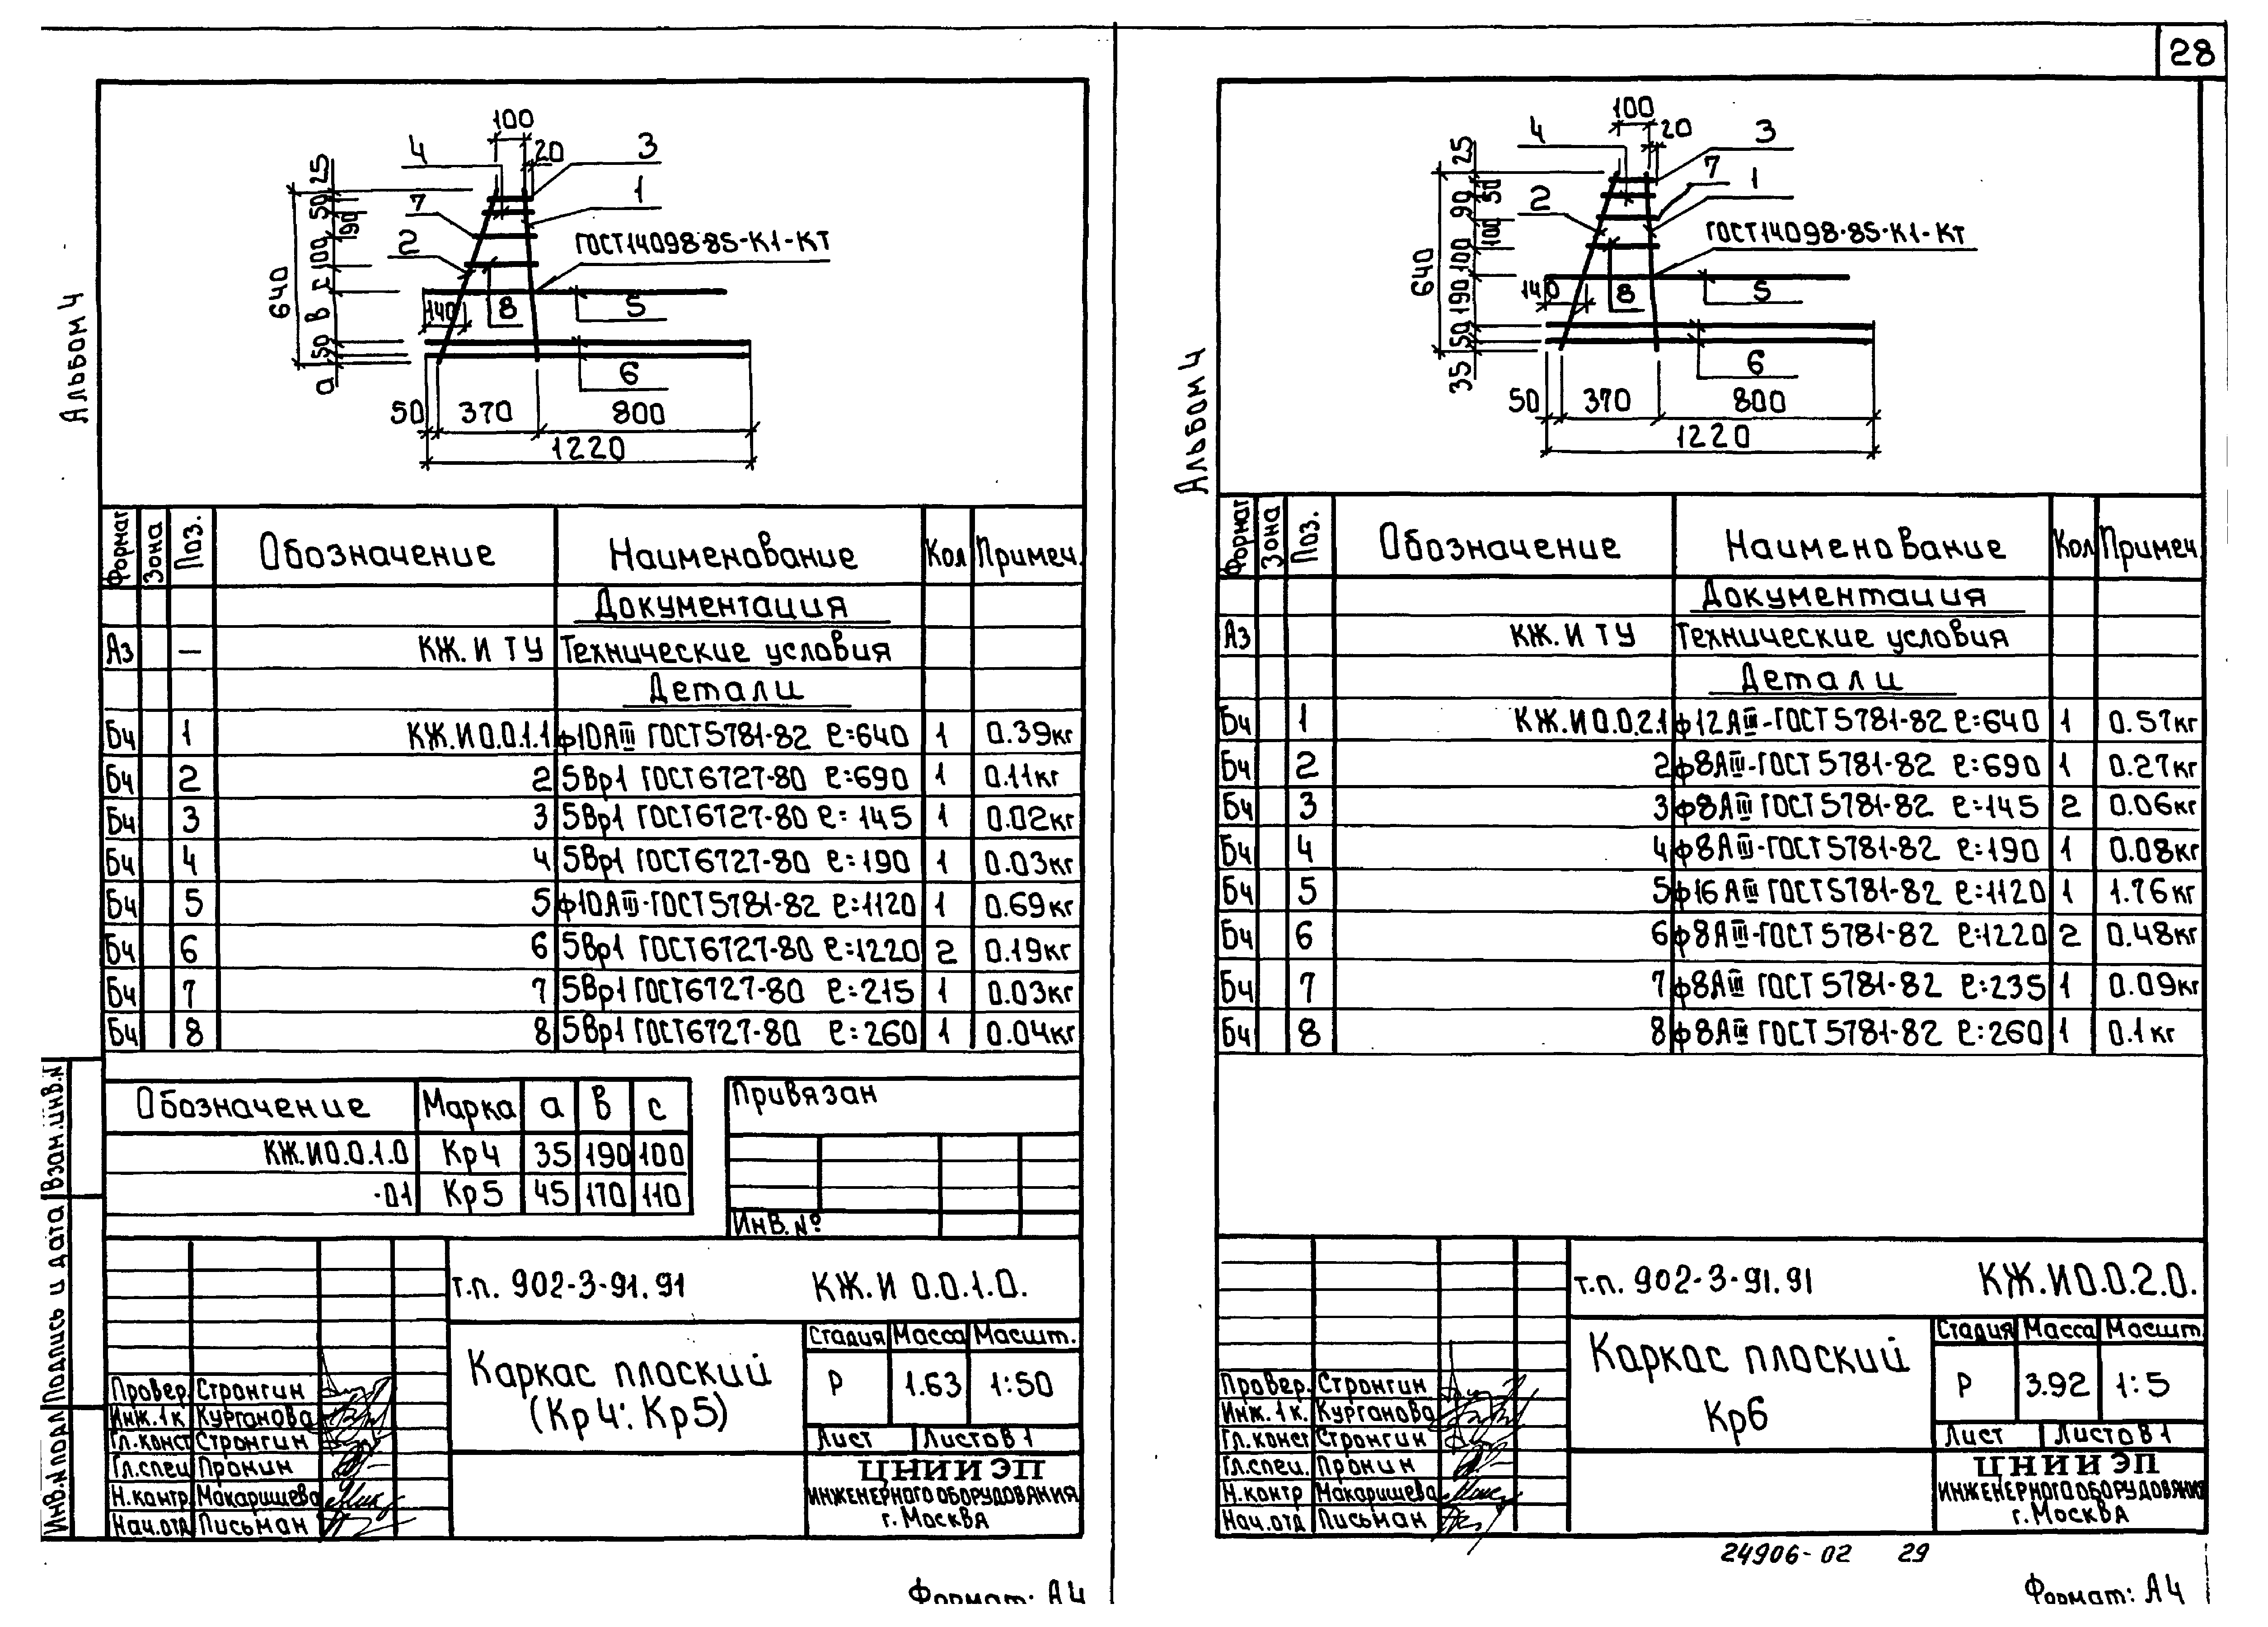 28
Альбом 4
100
20
4
3
7
1
2
ГОСТ14098-85-К1-КТ
25
50
90
100
с
в
50
а
640
140
8
5
6
50 370 800
1220
Формат Зона Поз. Обозначение Наименование Кол Примеч.
Документация
А3 — КЖ.И ТУ Технические условия
Детали
БЧ 1 КЖ.И0.0.1.1 ф10АIII ГОСТ5781-82 ℓ=640 1 0.39кг
БЧ 2 2 5Вр1 ГОСТ6727-80 ℓ=690 1 0.11кг
БЧ 3 3 5Вр1 ГОСТ6727-80 ℓ=145 1 0.02кг
БЧ 4 4 5Вр1 ГОСТ6727-80 ℓ=190 1 0.03кг
БЧ 5 5 ф10АIII-ГОСТ5781-82 ℓ=1120 1 0.69кг
БЧ 6 6 5Вр1 ГОСТ6727-80 ℓ=1220 2 0.19кг
БЧ 7 7 5Вр1 ГОСТ6727-80 ℓ=215 1 0.03кг
БЧ 8 8 5Вр1 ГОСТ6727-80 ℓ=260 1 0.04кг
Обозначение Марка а в с
КЖ.И0.0.1.0 Кр4 35 190 100
-01 Кр5 45 170 110
Привязан
Инв.№
Взан.инв.N
Подпись и дата
Инв.N подл
т.п. 902-3-91.91 КЖ.И 0.0.1.0.
Каркас плоский
(Кр4; Кр5)
Стадия Масса Масшт.
Р 1.63 1:50
Лист Листов 1
Провер. Стронгин
Инж.1к. Курганова
Гл.конст Стронгин
Гл.спец Пронин
Н.контр. Макаришева
Нач.отд Письман
ЦНИИЭП
ИНЖЕНЕРНОГО ОБОРУДОВАНИЯ
г. Москва
Формат: А4
Альбом 4
100
20
4
3
7
1
2
ГОСТ14098-85-К1-КТ
25
50
90
100
100
190
50
35
640
140
8
5
6
50 370 800
1220
Формат Зона Поз. Обозначение Наименование Кол Примеч.
Документация
А3 КЖ.И ТУ Технические условия
Детали
БЧ 1 КЖ.И0.0.2.1 ф12АIII-ГОСТ5781-82 ℓ=640 1 0.57кг
БЧ 2 2 ф8АIII-ГОСТ5781-82 ℓ=690 1 0.27кг
БЧ 3 3 ф8АIII ГОСТ5781-82 ℓ=145 2 0.06кг
БЧ 4 4 ф8АIII-ГОСТ5781-82 ℓ=190 1 0.08кг
БЧ 5 5 ф16АIII ГОСТ5781-82 ℓ=1120 1 1.76кг
БЧ 6 6 ф8АIII-ГОСТ5781-82 ℓ=1220 2 0.48кг
БЧ 7 7 ф8АIII ГОСТ5781-82 ℓ=235 1 0.09кг
БЧ 8 8 ф8АIII ГОСТ5781-82 ℓ=260 1 0.1кг
т.п. 902-3-91.91 КЖ.И0.0.2.0.
Каркас плоский
Кр6
Стадия Масса Масшт
Р 3.92 1:5
Лист Листов 1
Провер. Стронгин
Инж.1к. Курганова
Гл.конст Стронгин
Гл.спец. Пронин
Н.контр Макаришева
Нач.отд Письман
ЦНИИЭП
ИНЖЕНЕРНОГО ОБОРУДОВАНИЯ
г. Москва
24906-02 29
Формат: А4